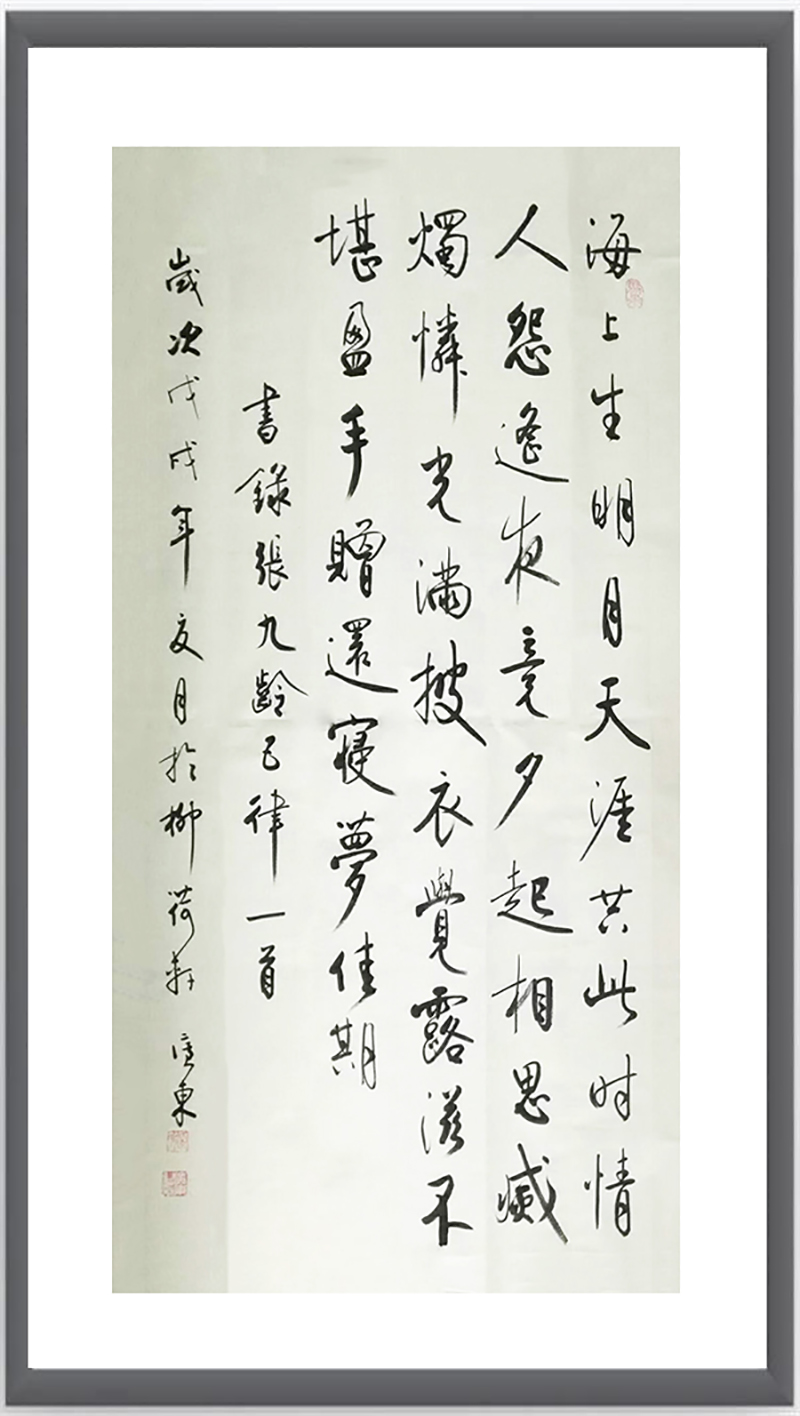 海上生明月天涯共此时情
人怨遙夜竟夕起相思滅
燭憐光滿披衣覺露滋不
堪盈手贈還寢夢佳期
書錄張九齡五律一首
歲次戊戌年夏月於柳荷軒東